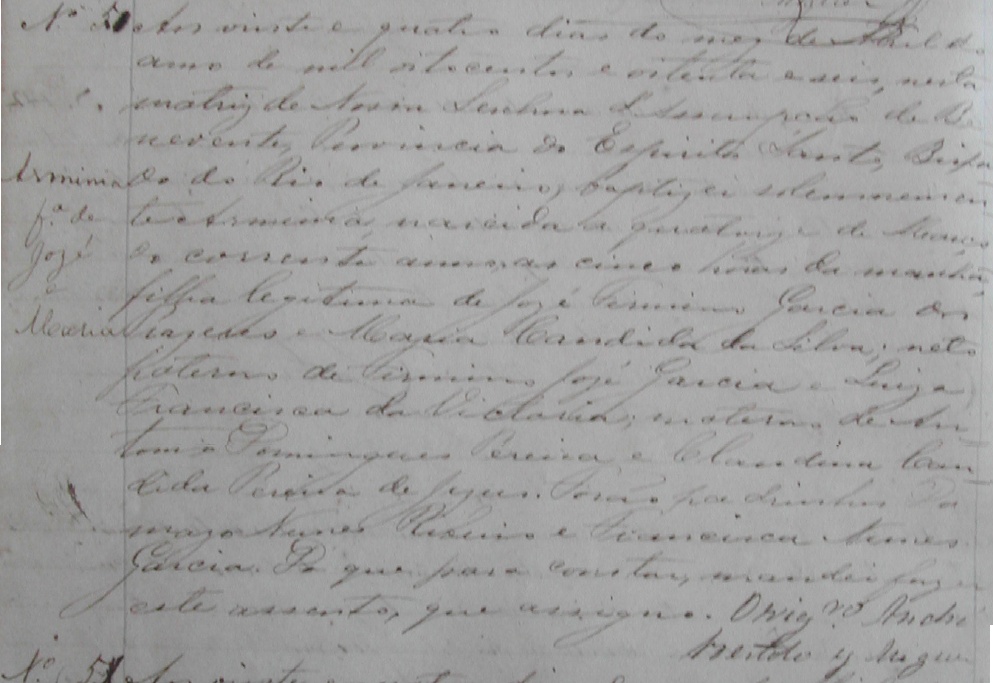 Nº 50 Aos vinte e quatro dias do mez de Abril do
anno de mil oitocentos e oitenta e seis, nesta
matriz de Nossa Senhora d'Assumpção de Be
nevente, Provincia do Espirito Santo, Bispa
Arminia do do Rio de Janeiro, baptizei solemnemen
fª de te a Arminia, nascida a quatorze de Março
José do corrente anno, as cinco horas da manhã,
e filha legitima de José Firmino Garcia dos
Maria e Maria Candida da Silva; neto
paterno de Firmino José Garcia e Luiza
Francisca da Victoria; materno de An
tonio Domingues Pereira e Claudina Can
dida Pereira de Jezus. Forão padrinhos Da
mazo Nunes Ribeiro e Francisca Nunes
Garcia. Do que para constar, mandei fazer
este assento, que assigno. O vigrº
y
Nº 51 Aos vinte e